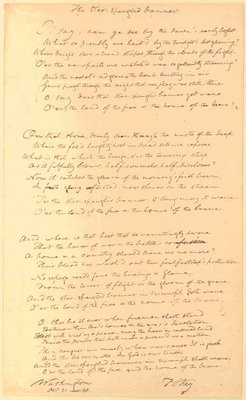 The Star-spangled banner
O say, can ye see by the dawn's early light
What so proudly we hail'd by the twilight's last gleaming?
Whose bright stars & broad stripes, through the clouds of the fight,
O'er the ramparts we watch'd were so gallantly streaming?
And the rocket's red glare, the bomb bursting in air
Gave proof through the night that our flag was still there
O say, does that star-spangled banner yet wave
O'er the land of the free & the home of the brave?
On that shore, dimly seen through the mists of the deep,
Where the foe's haughty host in dread silence reposes,
What is that which the breeze, o'er the towering steep
As it fitfully blows, half conceals, half discloses?
Now it catches the gleam of the morning's first beam,
In full glory reflected now shines on the stream
'Tis the star-spangled banner O long may it wave
O'er the land of the free & the home of the brave
And where is that host that so vauntingly swore
That the havoc of war & the battle's confusion
A home & a country should leave us no more?
Their blood has wash'd out their foul footstep's pollution
No refuge could save the hireling & slave
From the terror of flight or the gloom of the grave
And the star-spangled banner in triumph doth wave
O'er the land of the free & the home of the brave
O thus be it ever when freemen shall stand
Between their lov'd homes & the war's desolation
Blest with vict'ry & peace may the heav'n rescued land
Praise the power that hath made & preserv'd us a nation
Then conquer we must, when our cause it is just,
And this be our motto
And the star-spangled banner in triumph shall wave
O'er the land of the free & the home of the brave
Washington
Oct 21
F S Key